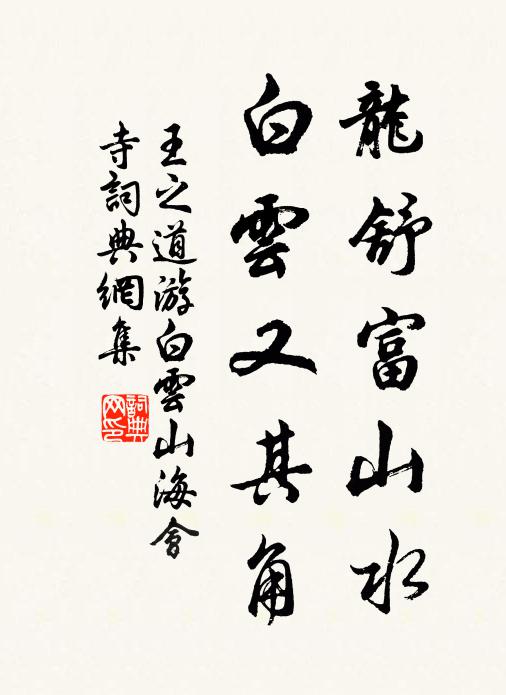 龍舒富山水
白雲又其角
王之道游白雲山海會
寺詞典網集
詞典
网印